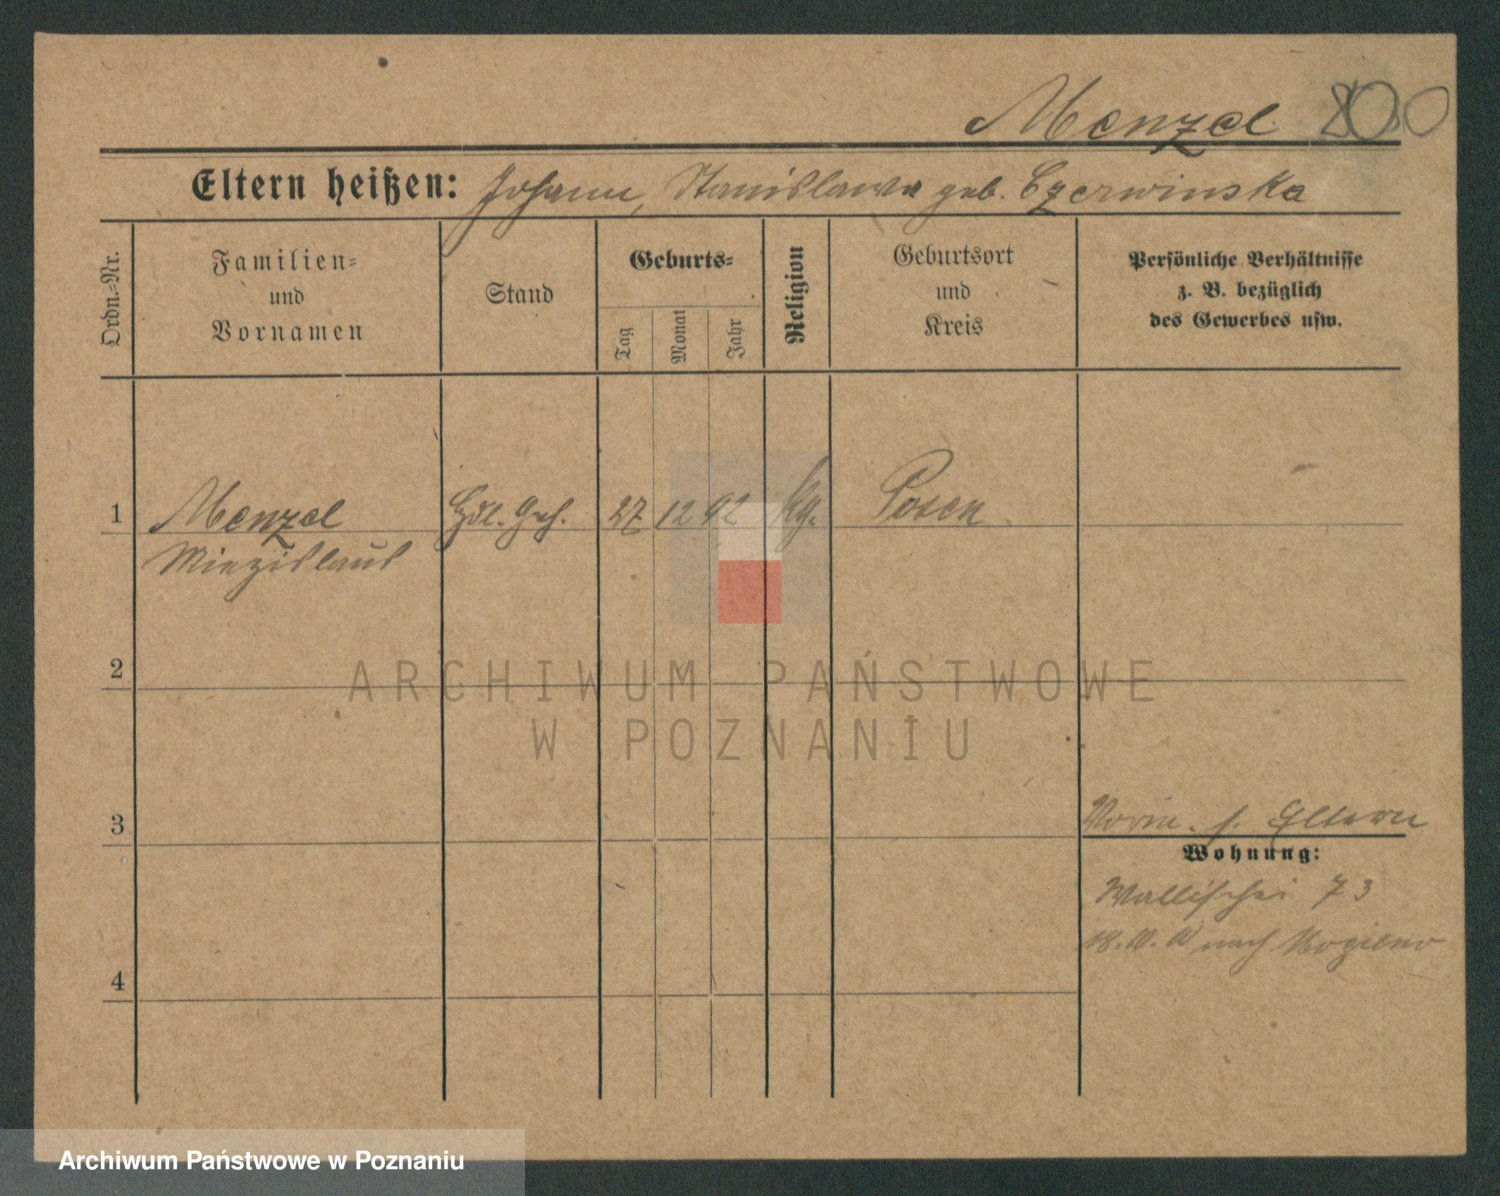 Menzel 800
Eltern heißen: Johann, Stanislawa geb. Czerwinska
Ordn.-Nr.
Familien-
und
Vornamen
Stand
Geburts-
Tag
Monat
Jahr
Religion
Geburtsort
und
Kreis
Persönliche Verhältnisse
z. B. bezüglich
des Gewerbes usw.
1 Menzel Hdl. Geh. 27 12 92 kg. Posen
Miezislaus
2
ARCHIWUM PAŃSTWOWE
W POZNANIU
3
Vorm. s. Eltern
Wohnung:
Wallischei 73
nach
4
Archiwum Państwowe w Poznaniu